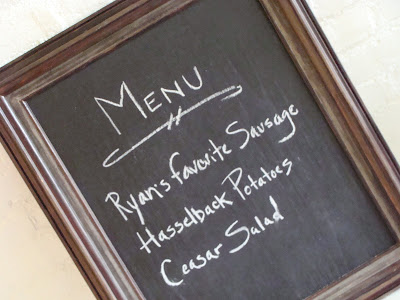 Menu
Ryan's Favorite Sausage
Hasselback Potatoes
Ceasar Salad